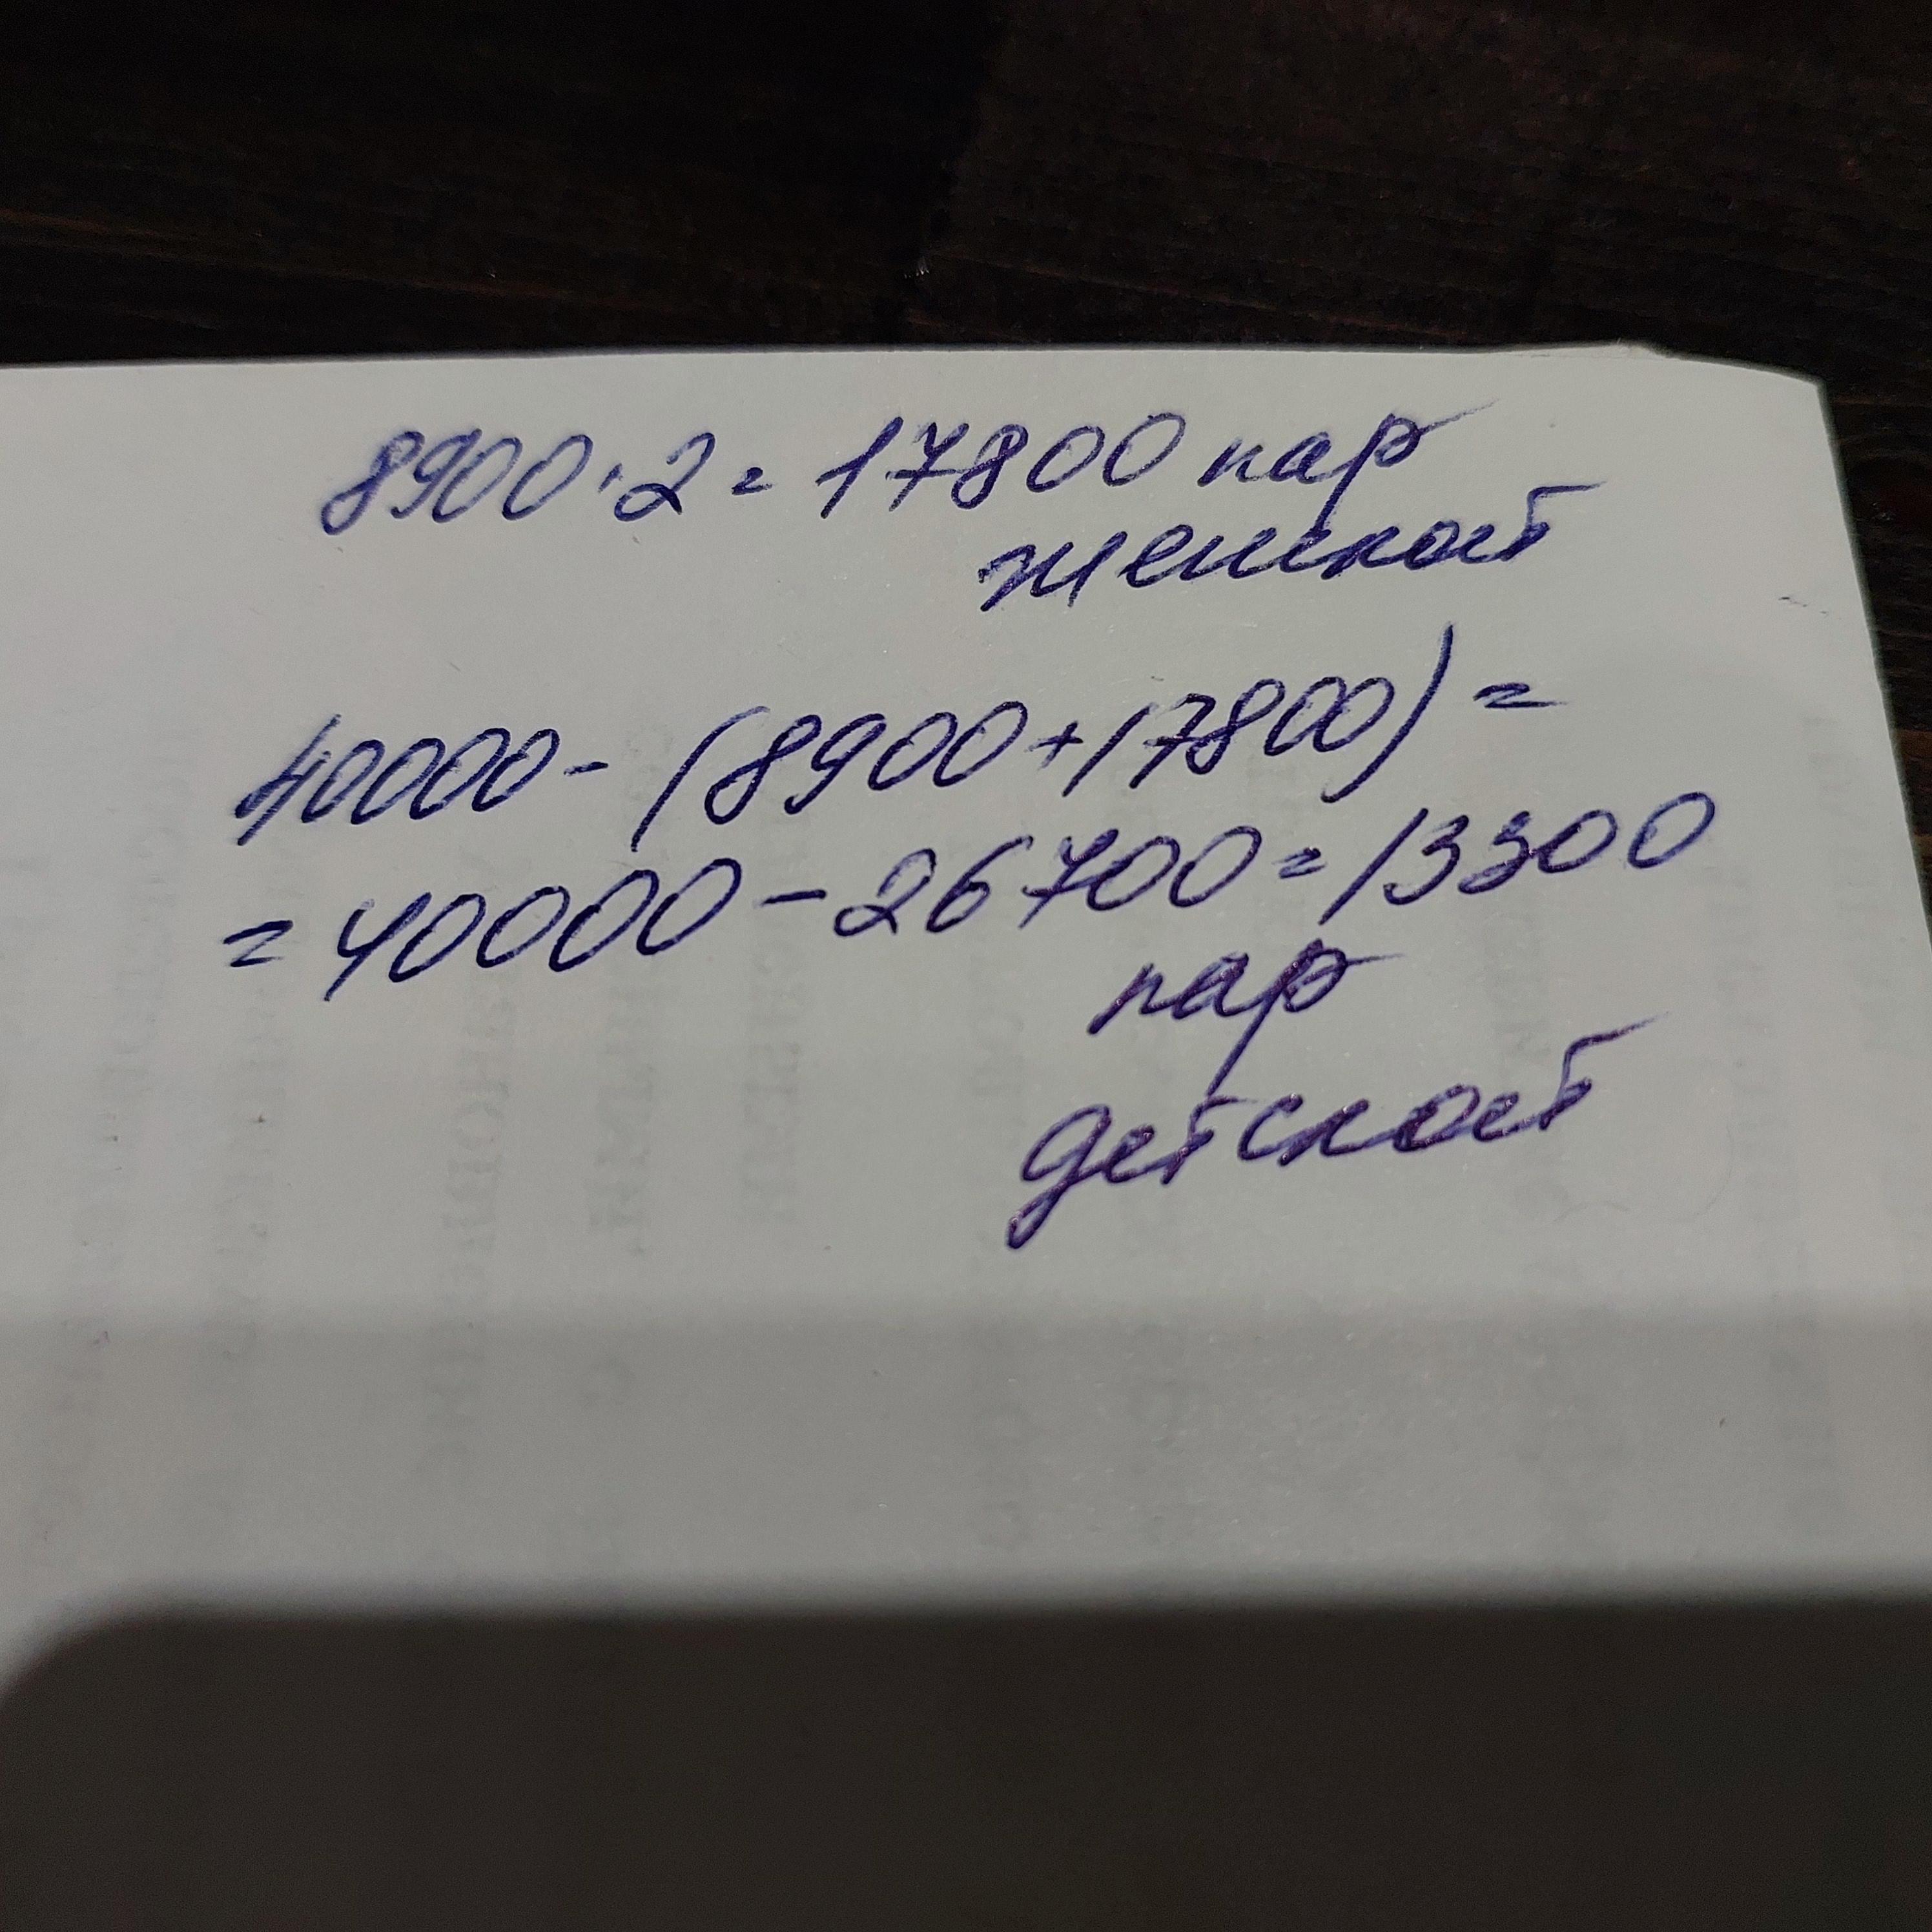 8900·2=17800 пар
женской
40000-(8900+17800)=
=40000-26700=13300
пар
детской